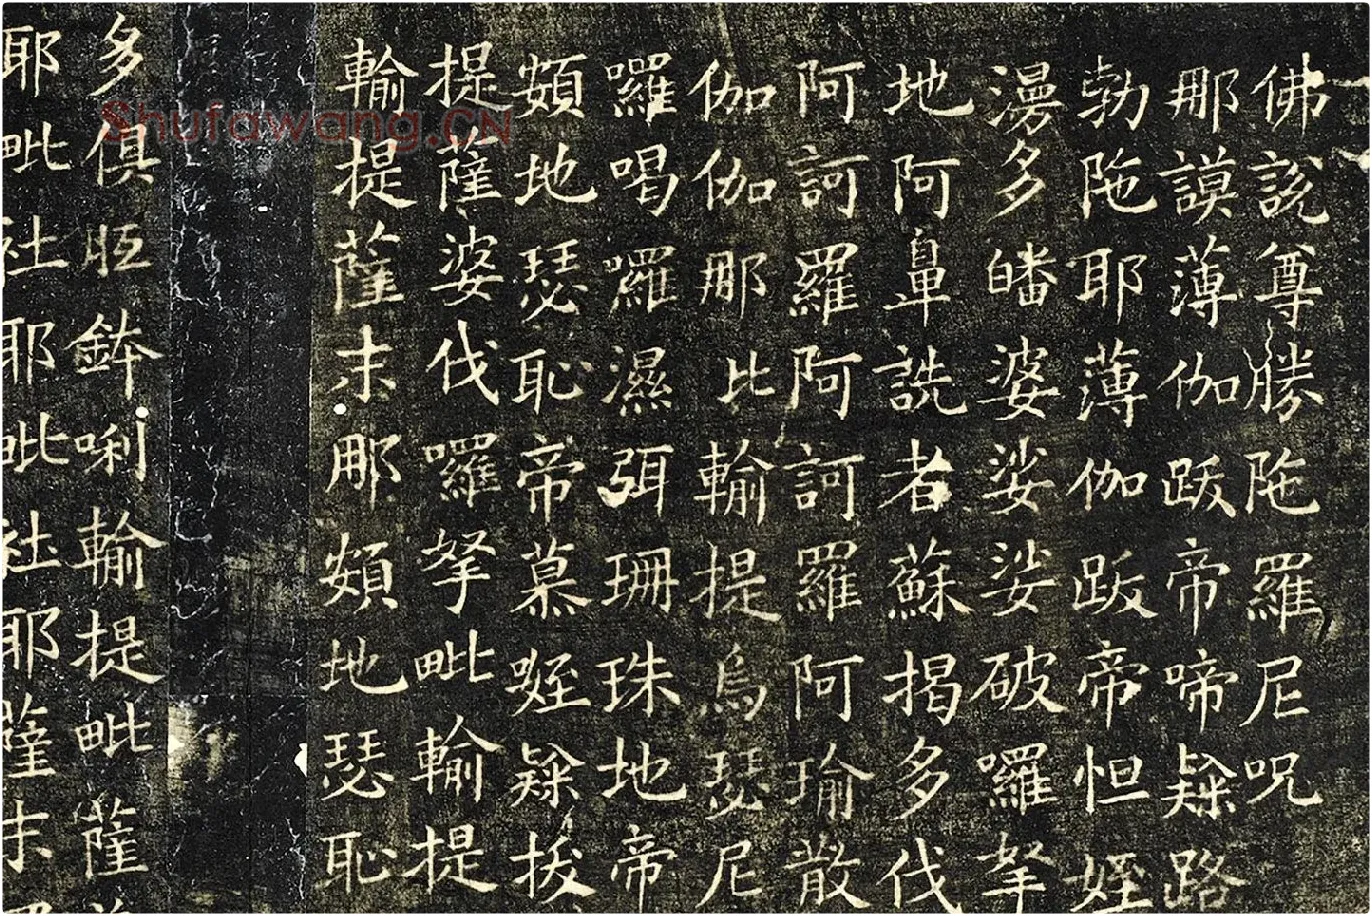 佛說尊勝陁羅尼呪
那謨薄伽跋帝啼隸路
勃陁耶薄伽跋帝怛姪
湯多皤婆娑娑破羅拏
地阿鼻詵者蘇揭多伐
阿訶羅阿訶羅阿瑜散
伽伽那比輸提烏瑟尼
囉喝囉濕弭珊珠地帝
頞地瑟恥帝慕姪隸拔
提薩婆伐囉拏毗輸提
輸提薩末那頞地瑟恥
多俱胝鉢唎輸提毗薩
耶毗社耶毗社耶薩末
Shufawang.CN